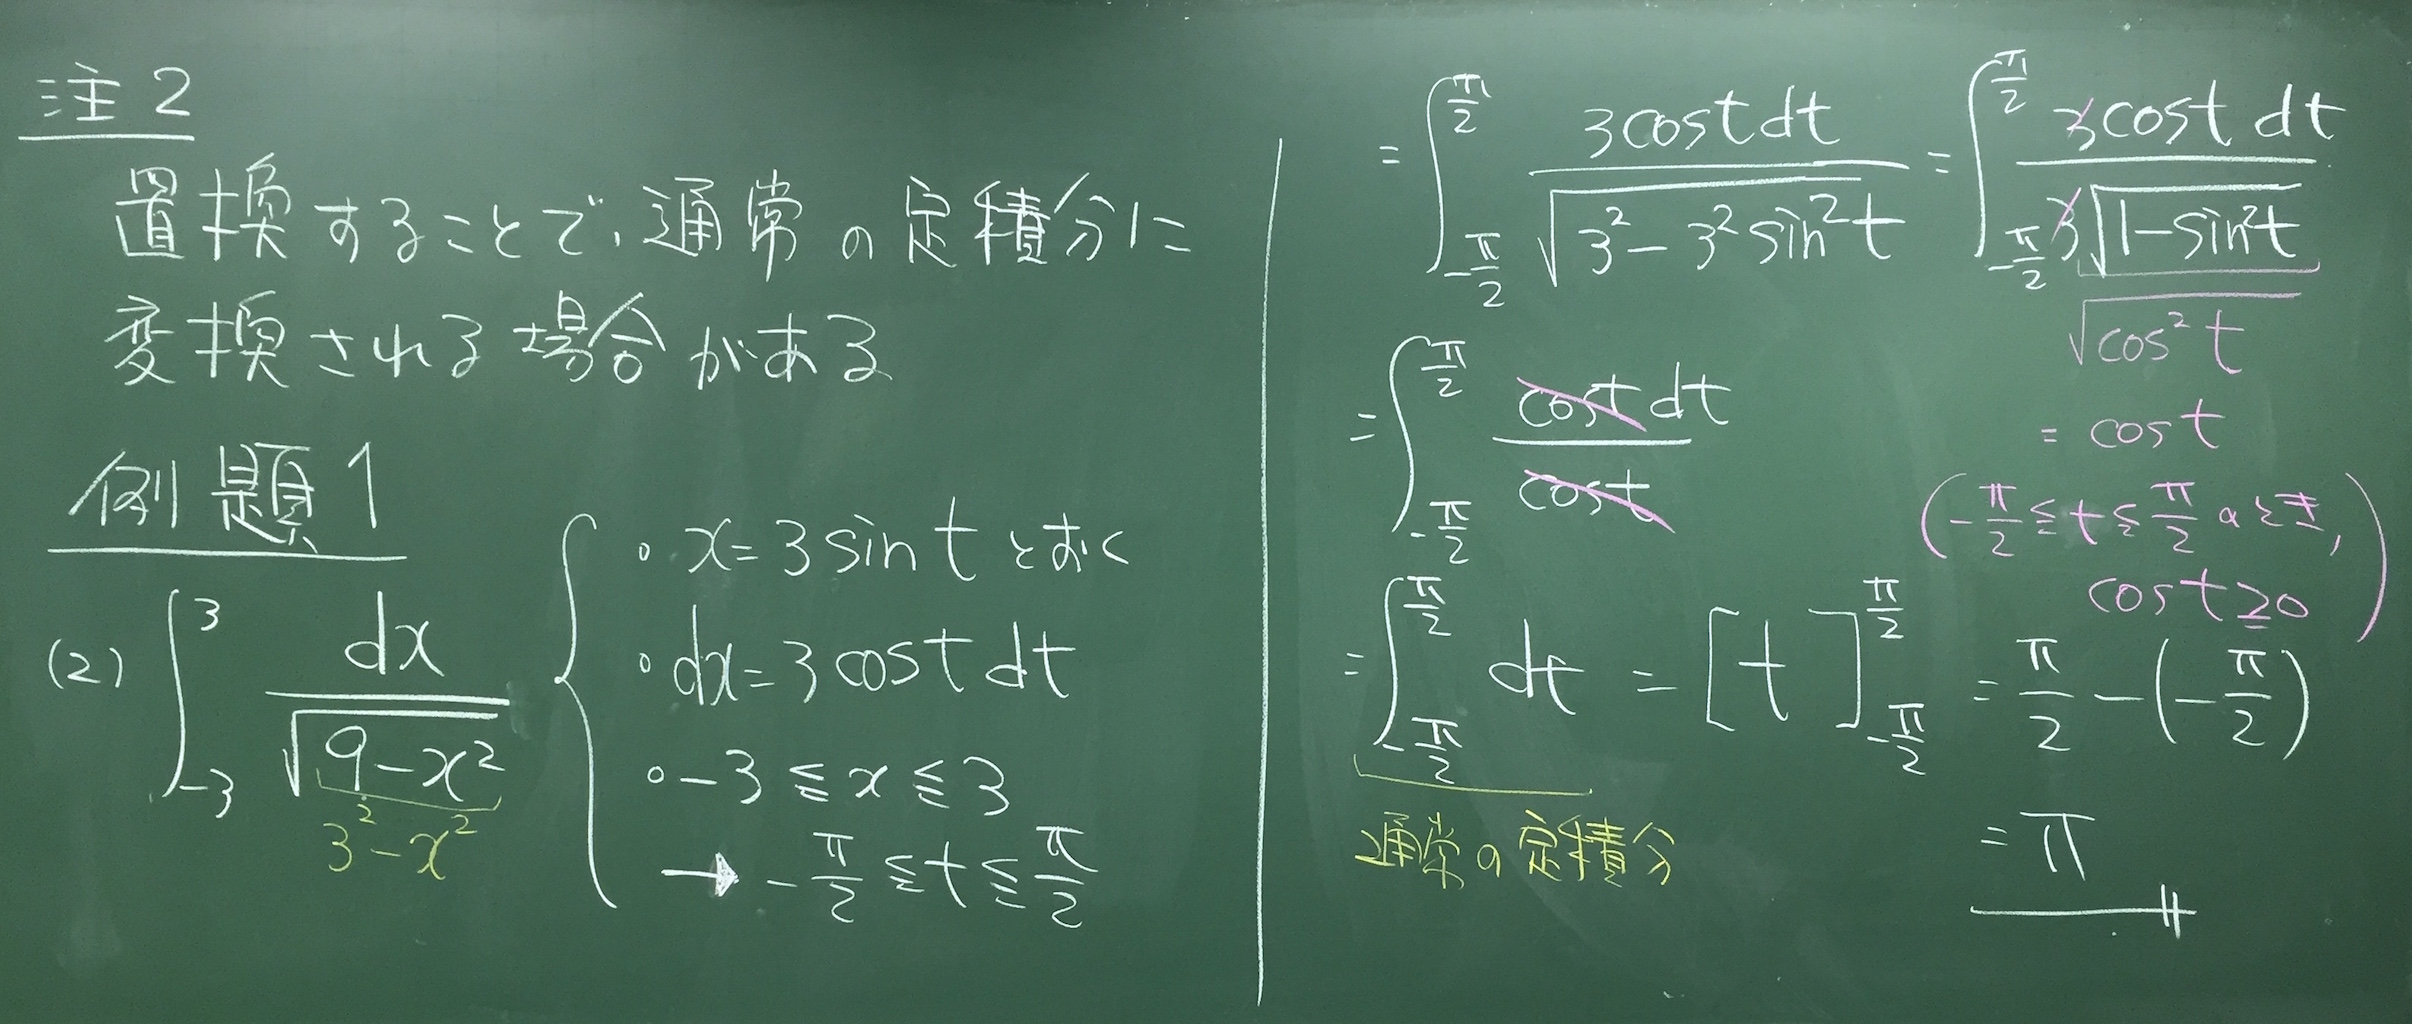 注2
置換することで、通常の定積分に
変換される場合がある
例題1
(2) ∫_{-3}^{3} dx/√(9-x²)
3²-x²
∘ x=3sin t とおく
∘ dx=3cost dt
∘ -3≦x≦3
→ -π/2≦t≦π/2
=∫_{-π/2}^{π/2} 3cost dt/√(3²-3²sin²t) =∫_{-π/2}^{π/2} 3cost dt/3√(1-sin²t)
√cos²t
= cost
(-π/2≦t≦π/2のとき, cost≧0)
=∫_{-π/2}^{π/2} cost dt/cost
=∫_{-π/2}^{π/2} dt = [t]_{-π/2}^{π/2} = π/2-(-π/2)
通常の定積分
=π